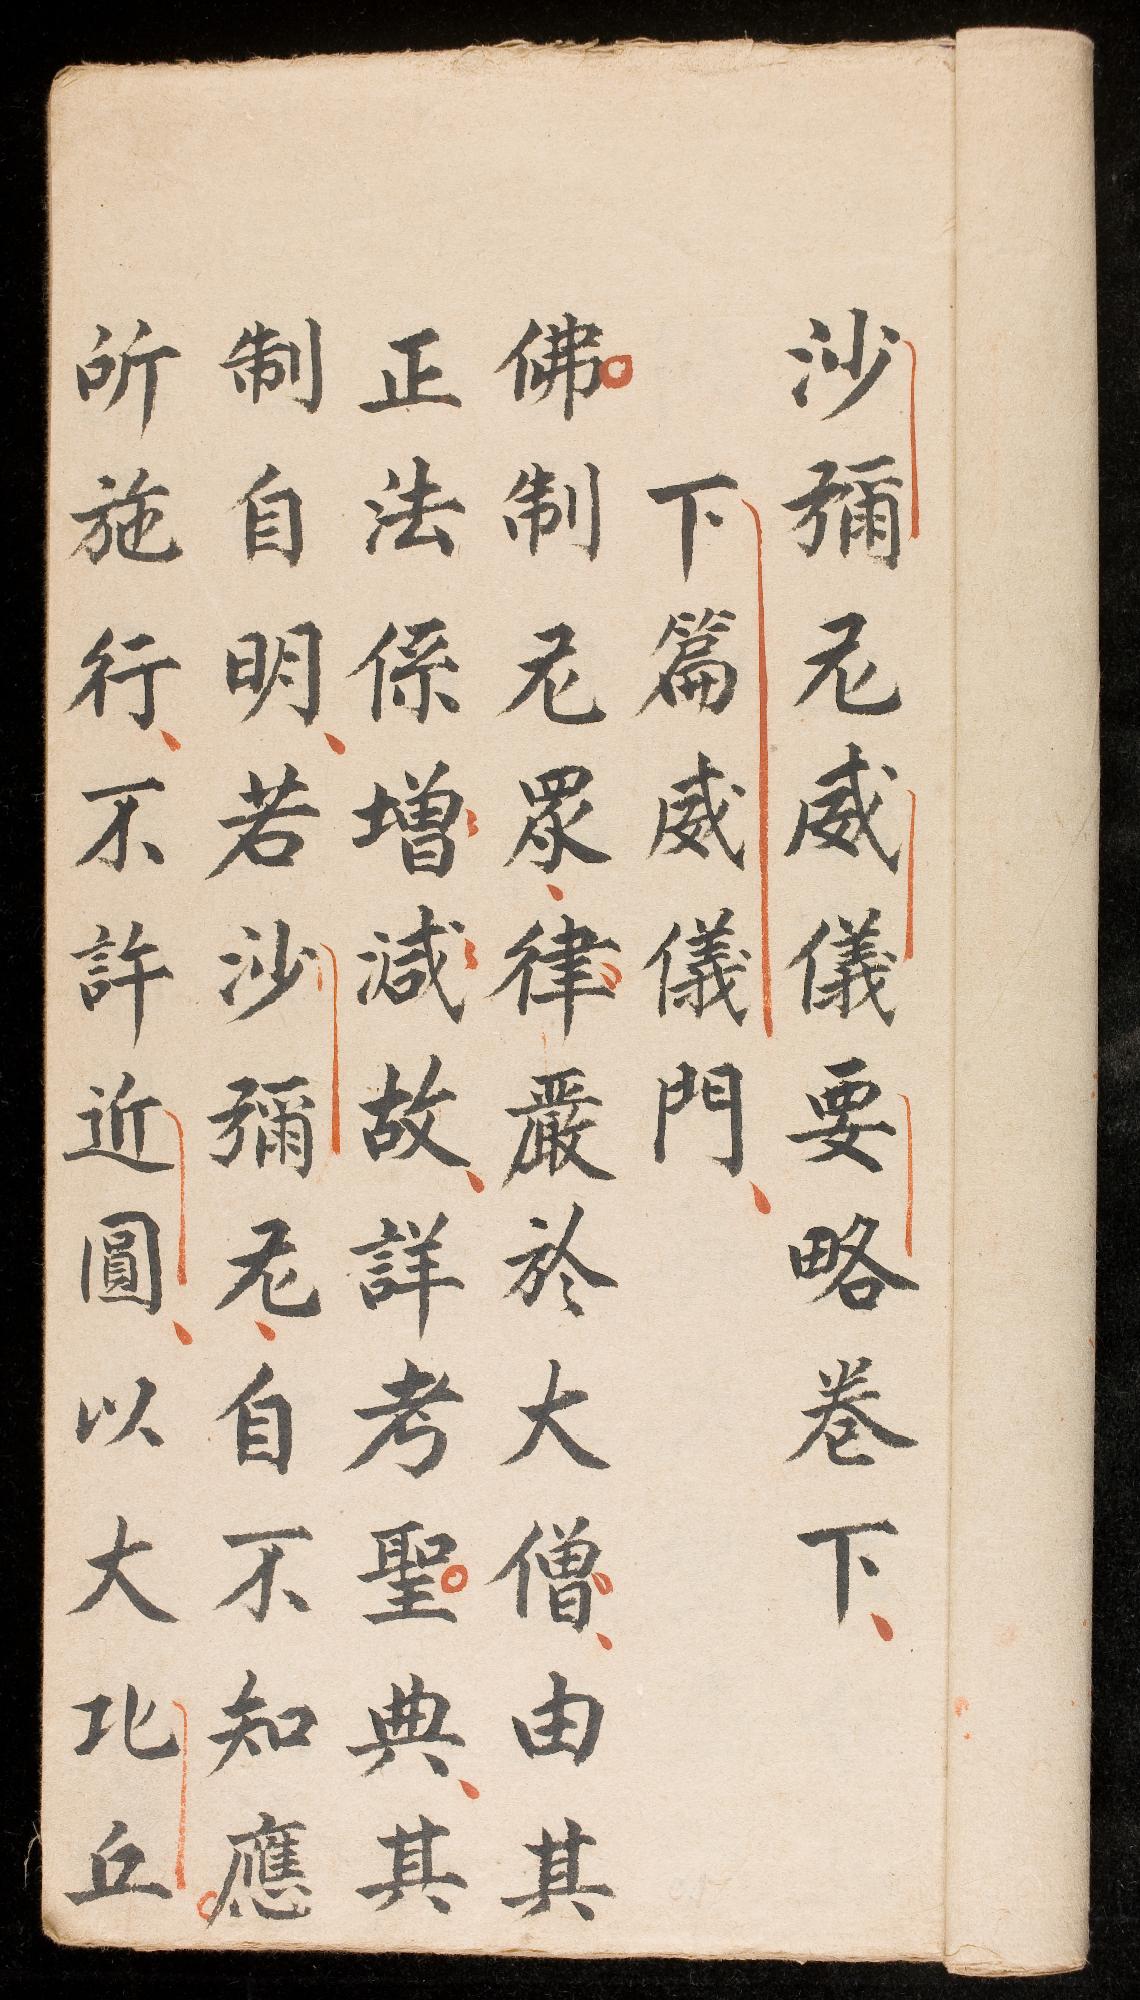 沙彌尼威儀要略卷下
下篇威儀門
佛制尼眾律嚴於大僧由其
正法係增減故詳考聖典其
制自明若沙彌尼自不知應
所施行不許近圓以大比丘